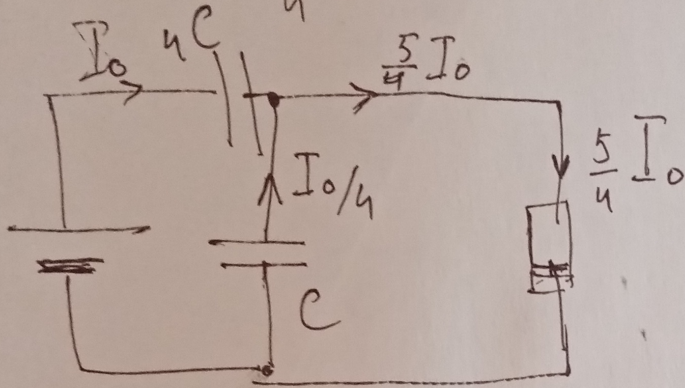 4
I₀
4C
5/4 I₀
I₀/4
5/4 I₀
C